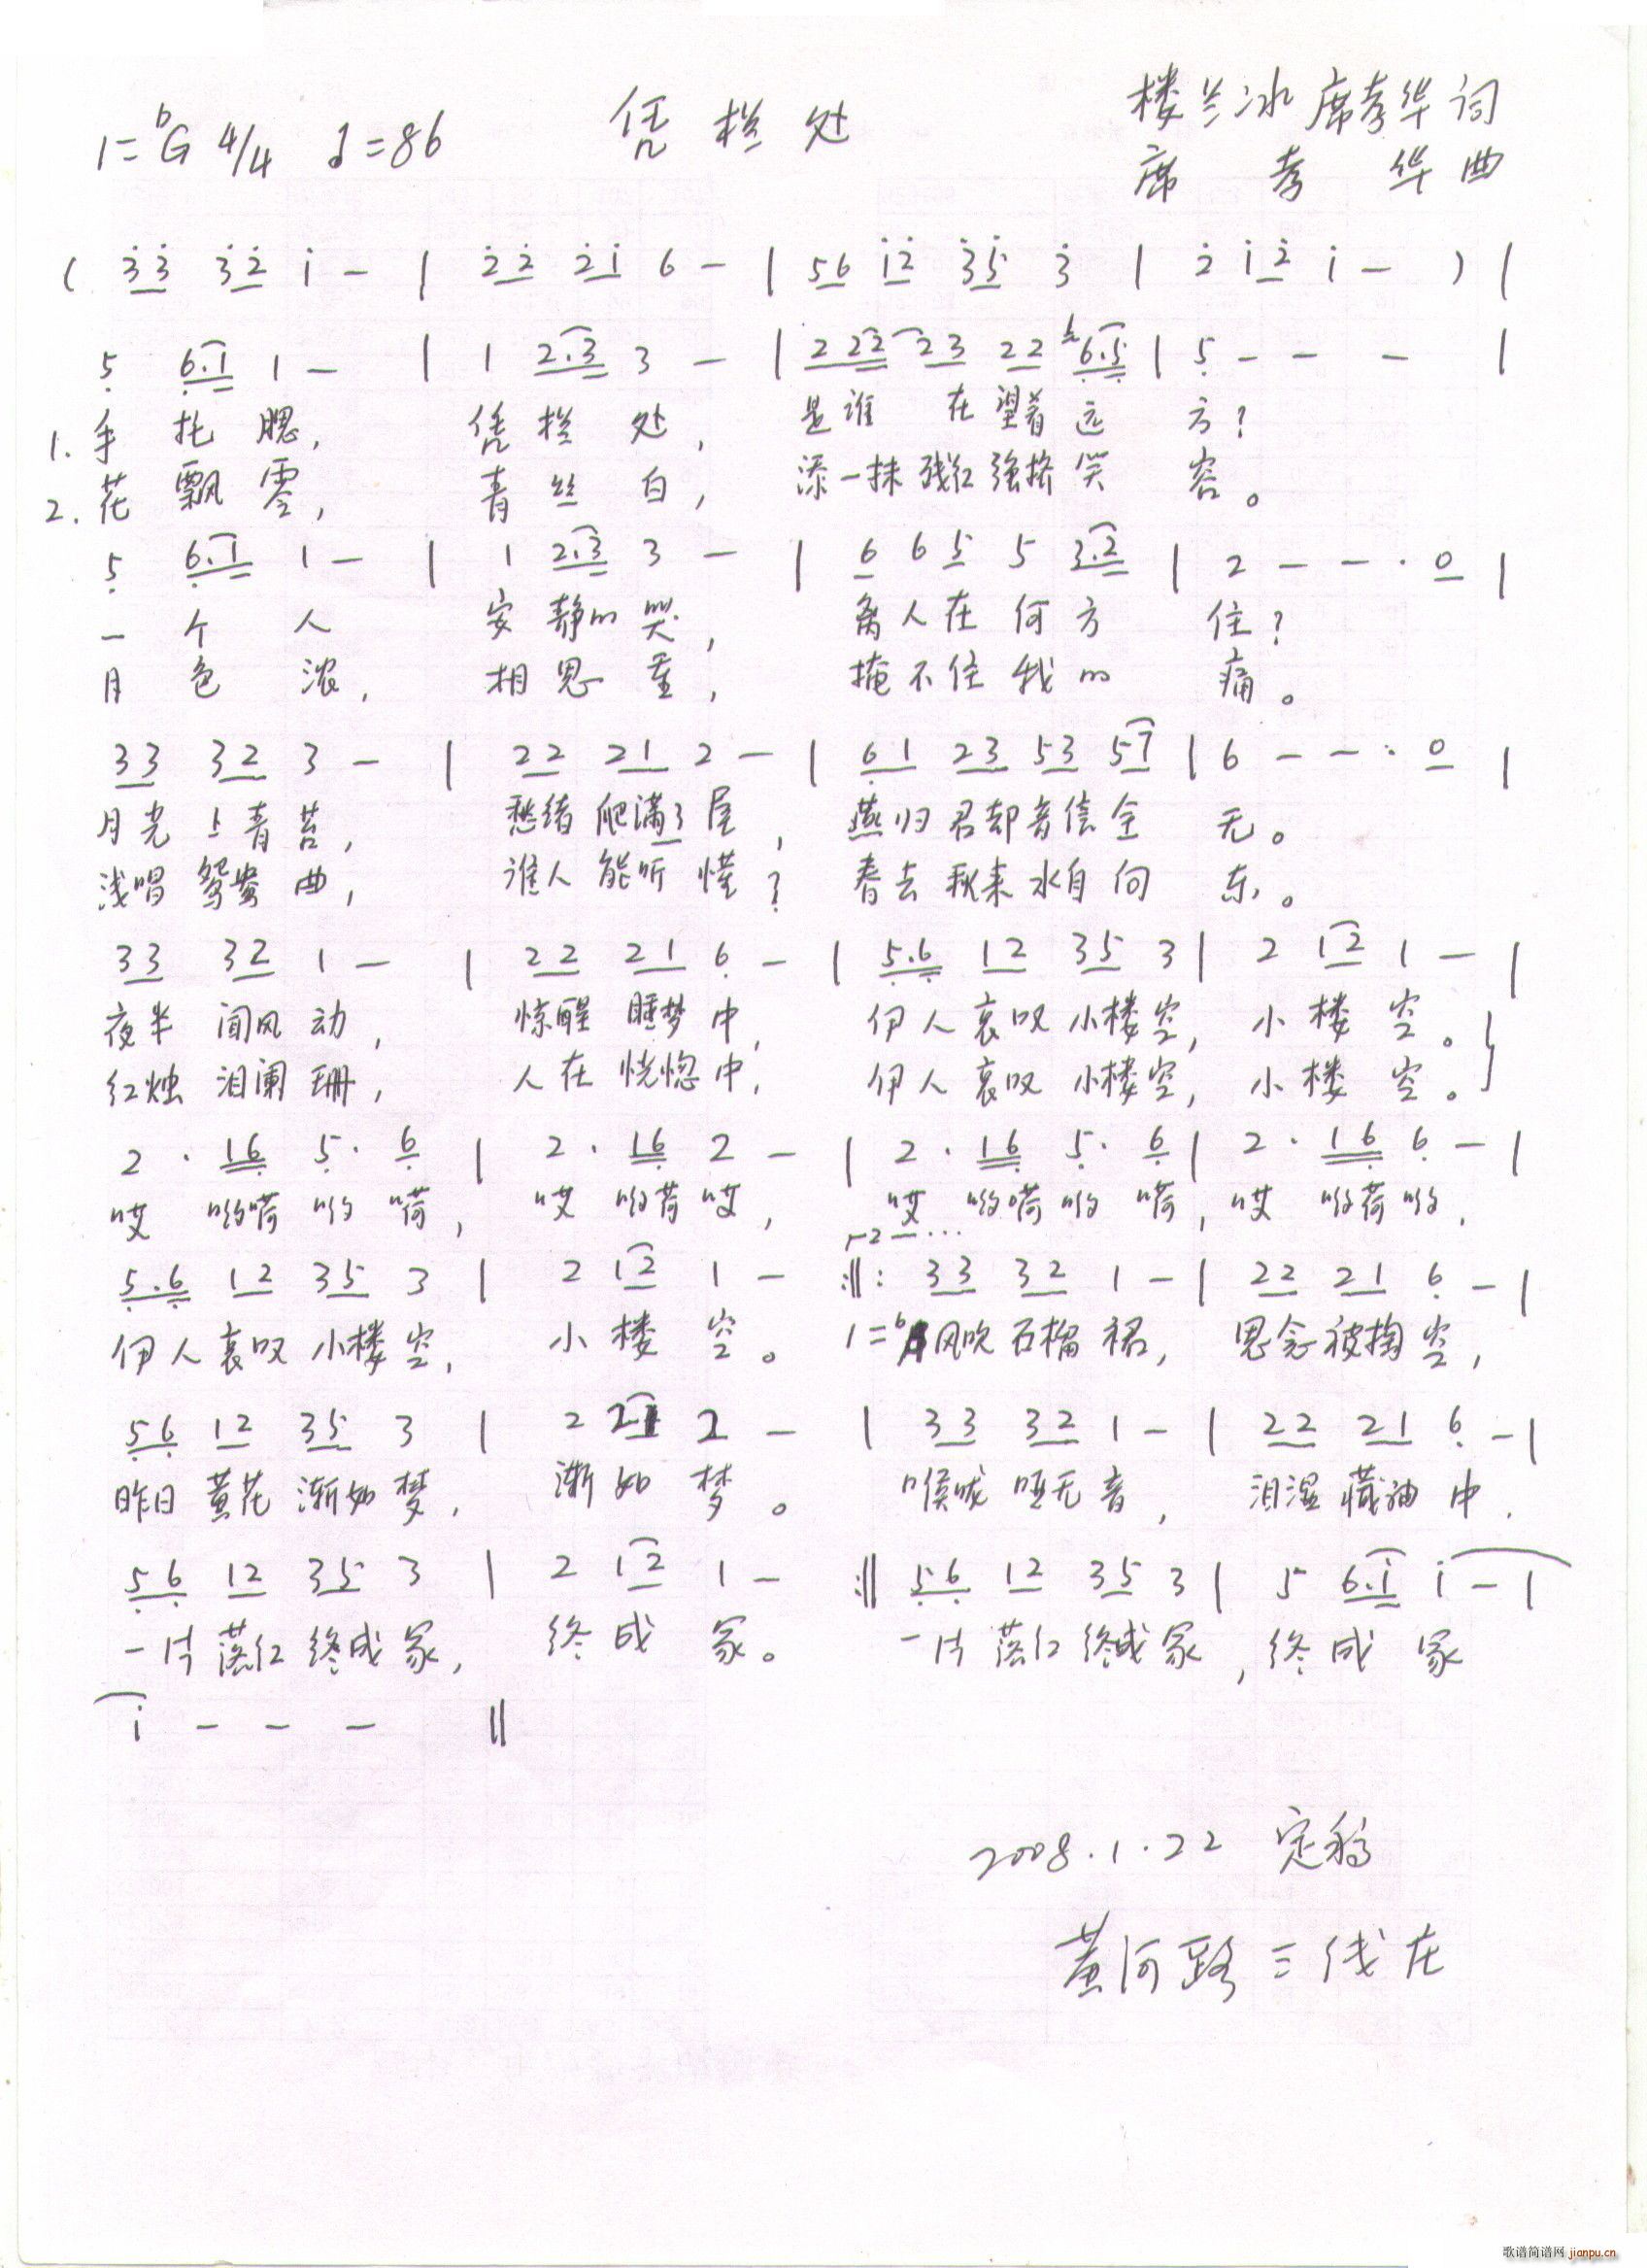 1=ᵇG 4/4 ♩=86 凭栏处 楼兰冰 席孝华词
席孝华曲
( 3̇3̇ 3̇2̇ 1̇ — | 2̇2̇ 2̇1̇ 6 — | 56 1̇2̇ 3̇5̇ 3̇ | 2̇ 1̇2̇ 1̇ — ) |
5 6.1 1 — | 1 2.3 3 — | 2 22 23 22 6.5 | 5 — — — |
1. 手托腮, 凭栏处, 是谁在望着远方?
2. 花飘零, 青丝白, 添一抹残红强摇笑容。
5 6.1 1 — | 1 2.3 3 — | 6 6 5 5 3.2 | 2 — — · 0 |
一个人 安静的哭, 离人在何方住?
月色浓, 相思重, 掩不住我的痛。
33 32 3 — | 22 21 2 — | 61 23 53 57 | 6 — — · 0 |
月光上青苔, 愁绪爬满了屋, 燕归君却音信全无。
浅唱鸳鸯曲, 谁人能听懂? 春去秋来水自向东。
33 32 1 — | 22 21 6 — | 5.6 12 35 3 | 2 12 1 — |
夜半闻风动, 惊醒睡梦中, 伊人哀叹小楼空, 小楼空。
红烛泪阑珊, 人在恍惚中, 伊人哀叹小楼空, 小楼空。
2 · 16 5 · 6 | 2 · 16 2 — | 2 · 16 5 · 6 | 2 · 16 6 — |
哎 哟嗬哟嗬, 哎 哟荷哎, 哎 哟嗬哟嗬, 哎 哟荷哟,
┌2—···
5.6 12 35 3 | 2 12 1 — :‖: 33 32 1 — | 22 21 6 — |
伊人哀叹小楼空, 小楼空。 1=ᵇA 风吹石榴裙, 思念被掏空,
56 12 35 3 | 2 21 2 — | 33 32 1 — | 22 21 6 — |
昨日黄花渐如梦, 渐如梦。 喉咙哑无音, 泪湿藏袖中,
56 12 35 3 | 2 12 1 — :‖ 56 12 35 3 | 5 6.1̇ 1̇ — |
一片落红终成冢, 终成冢。 一片落红终成冢, 终成冢
1̇ — — — ‖
2008.1.22 定稿
黄河路三线在
歌谱简谱网 jianpu.cn